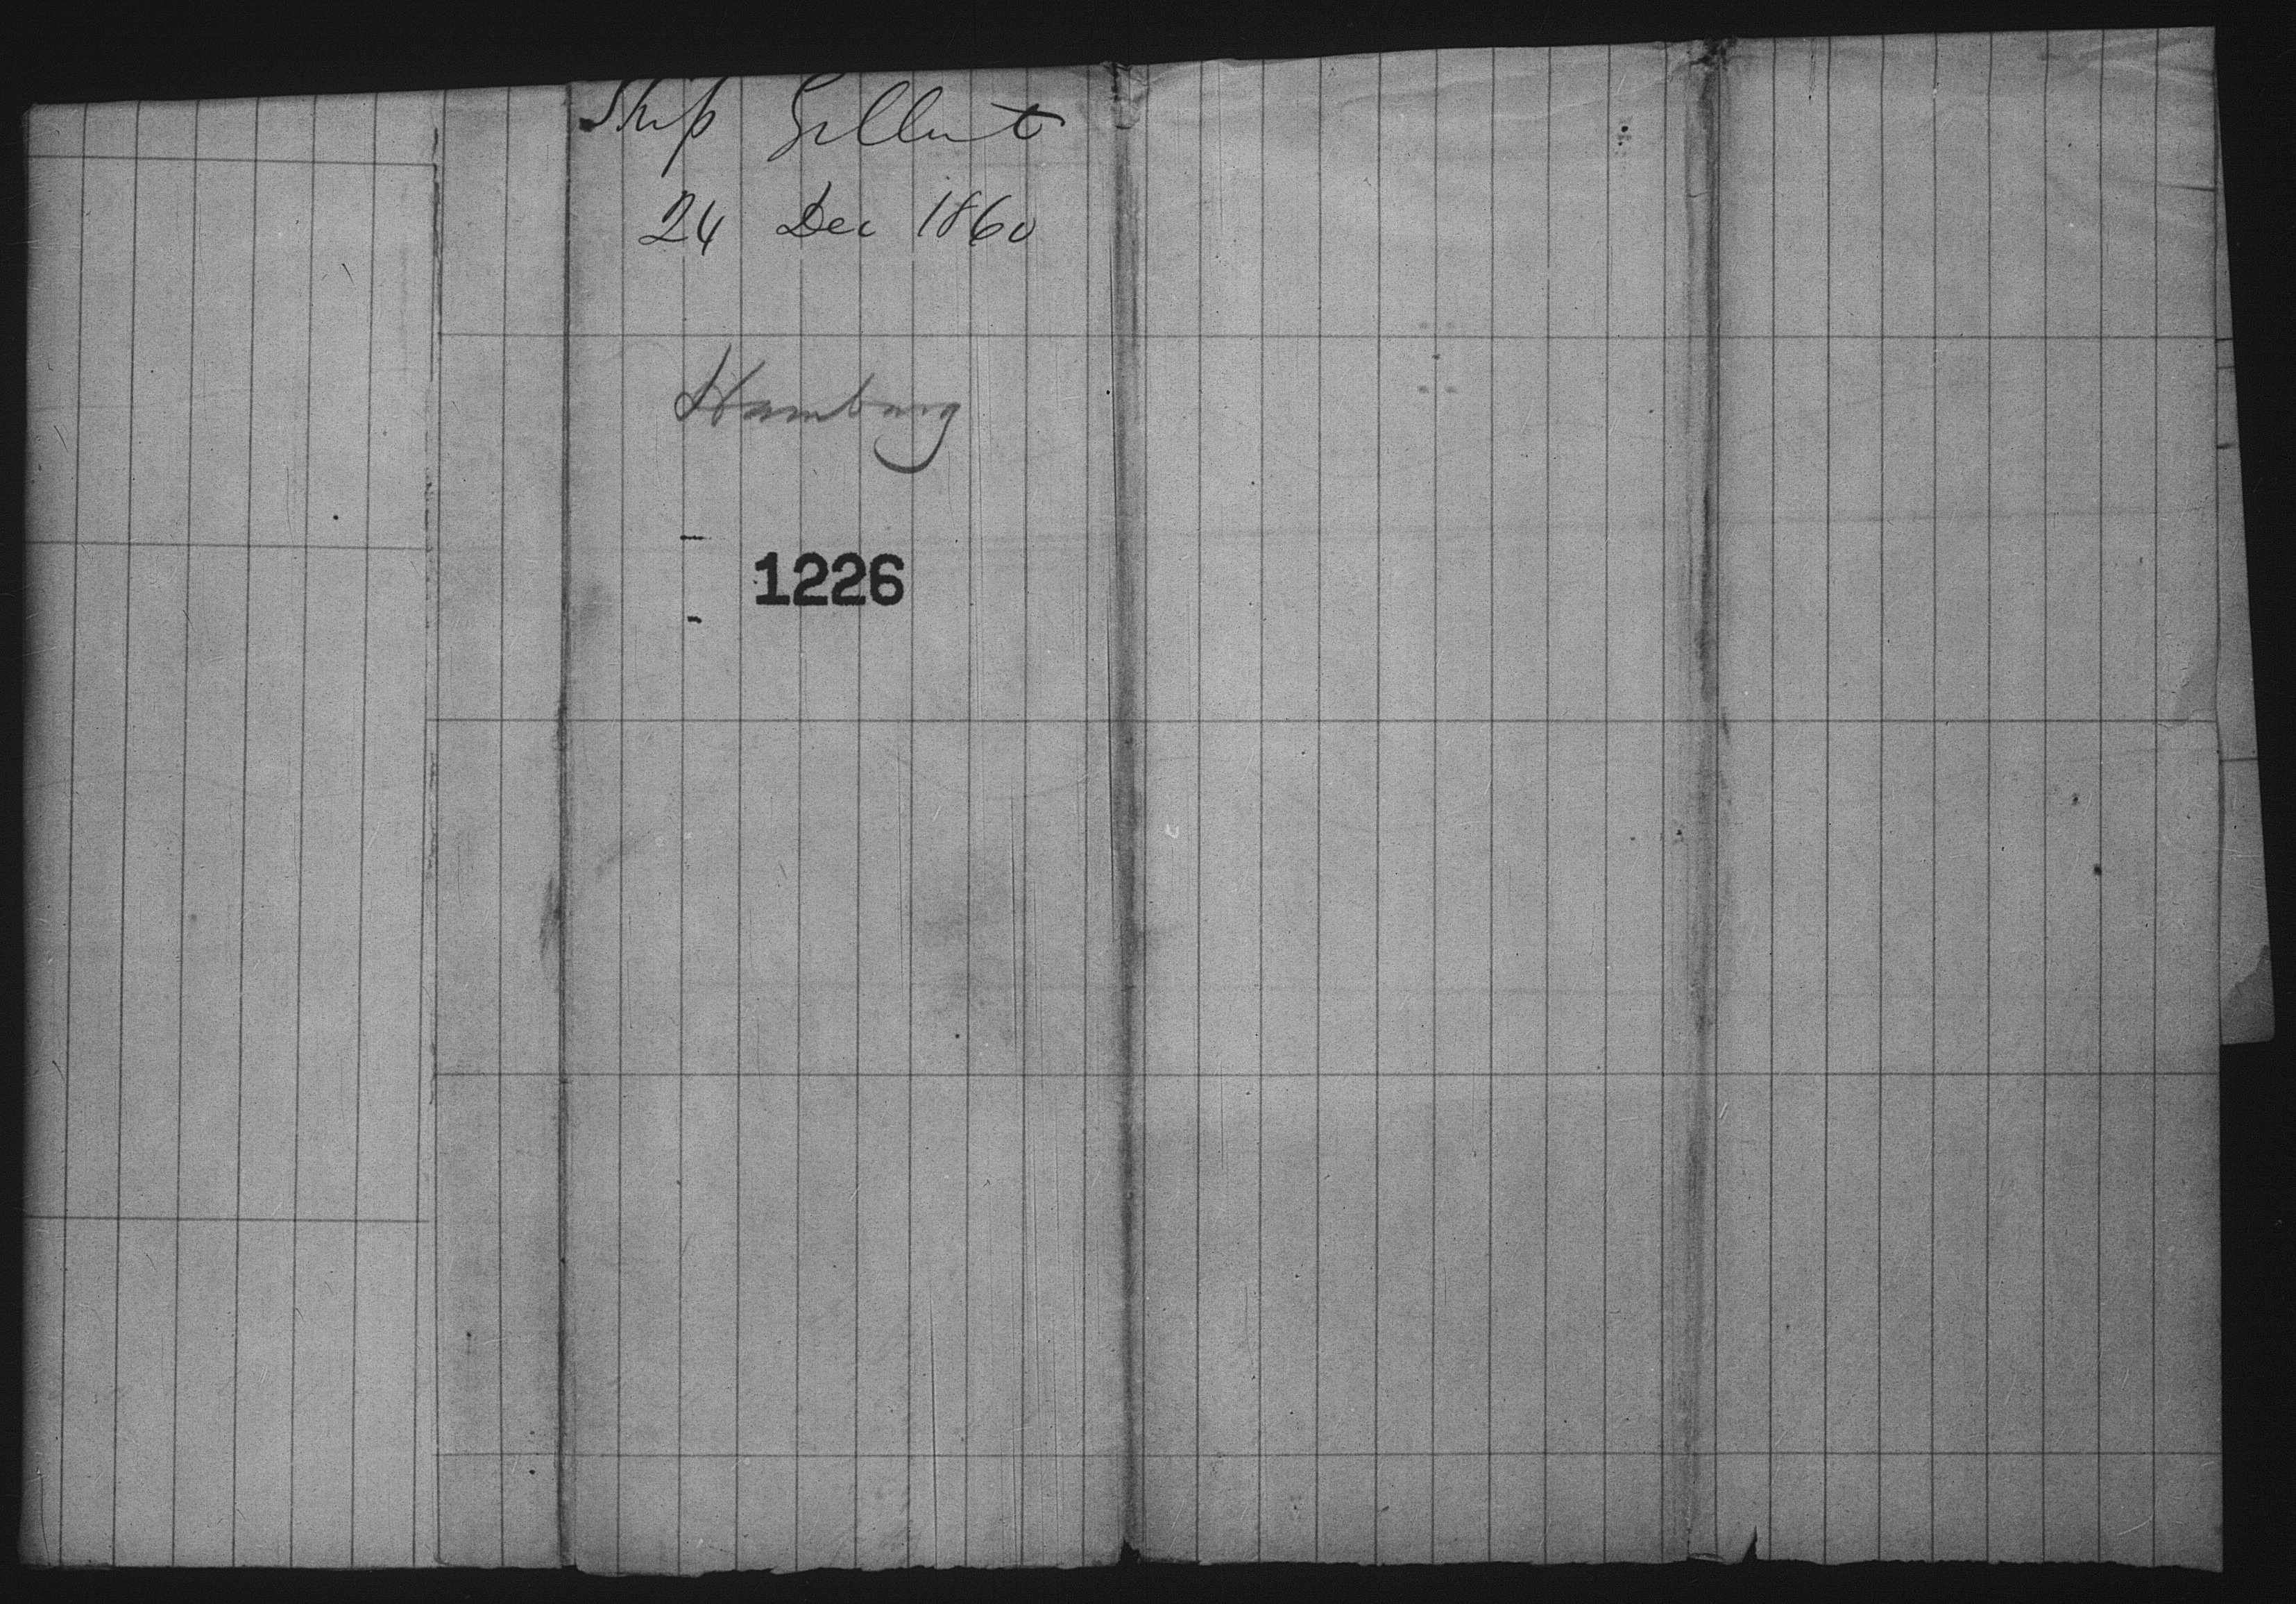 Ship Gellert
24 Dec 1860
Hamburg
1226